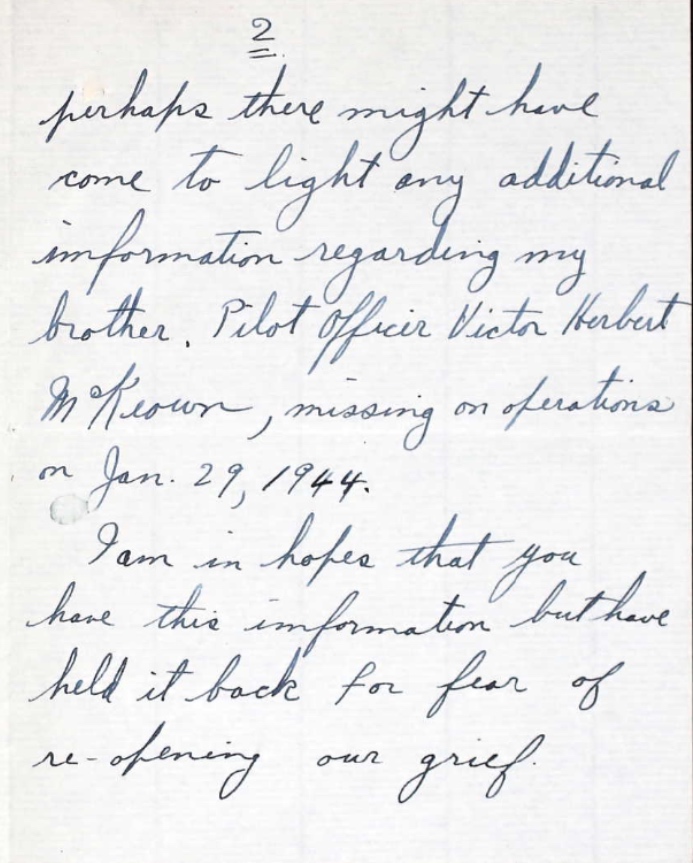 2
perhaps there might have
come to light any additional
information regarding my
brother. Pilot Officer Victor Herbert
McKeown, missing on operations
on Jan. 29, 1944.
I am in hopes that you
have this information but have
held it back for fear of
re-opening our grief.